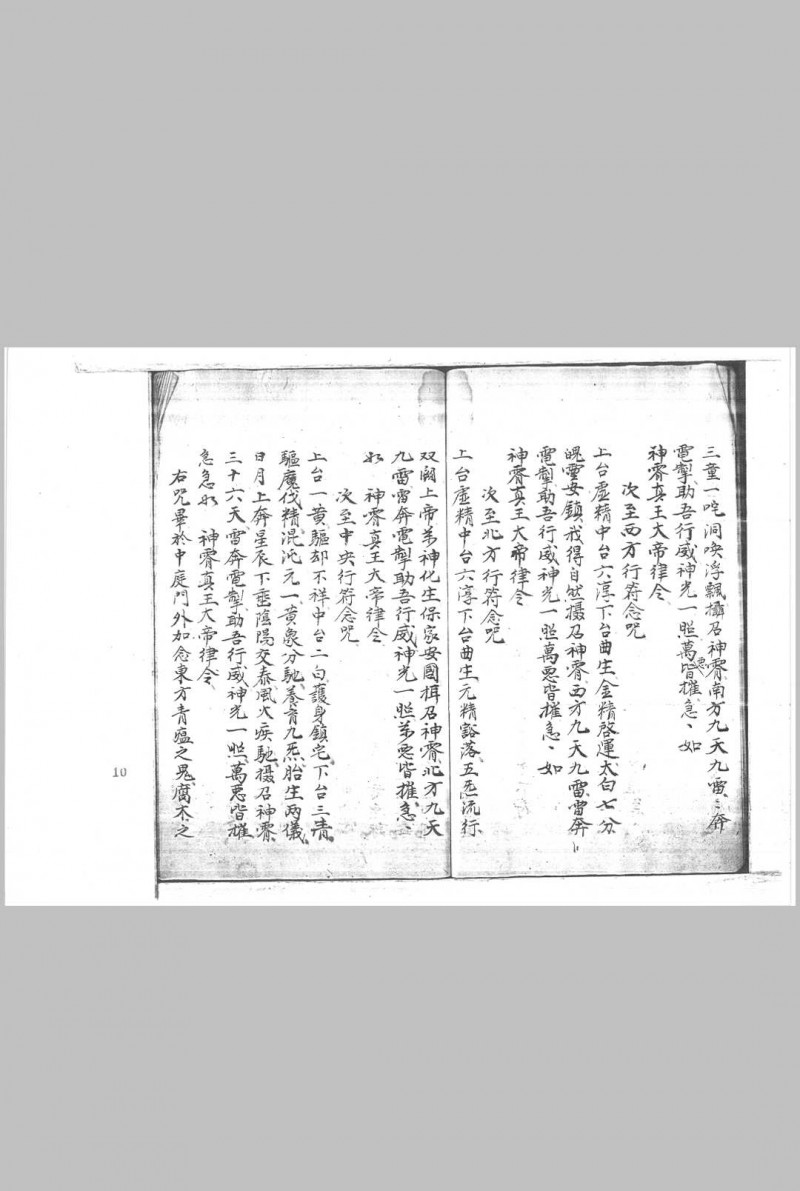 三童一咤洞喚浮飄攝召神霄南方九天九雷〻奔
電掣助吾行威神光一照萬悪皆摧急〻如
神霄真王大帝律令
次至西方行符念咒
上台虛精中台六淳下台曲生金精啓運太白七分
魄靈安鎮我得自然摄召神霄西方九天九雷雷奔
電掣助吾行威神光一照萬悪皆摧急〻如
神霄真王大帝律令
次至北方行符念咒
上台虛精中台六淳下台曲生元精豁落五炁流行
双闕上帝弟神化生保家安國摄召神霄北方九天
九雷雷奔電掣助吾行威神光一照弟悪皆摧急〻
如 神霄真王大帝律令
次至中央行符念咒
上台一黄驅却不祥中台二白護身鎮宅下台三青
驅魔伐精混沌元一黄象分馳養育九炁胎生两儀
日月上奔星辰下垂陰陽交泰風火疾馳摄召神霄
三十六天雷奔電掣助吾行威神光一照萬悪皆摧
急急如 神霄真王大帝律令
右咒畢於中庭門外加念東方青瘟之鬼腐木之
10